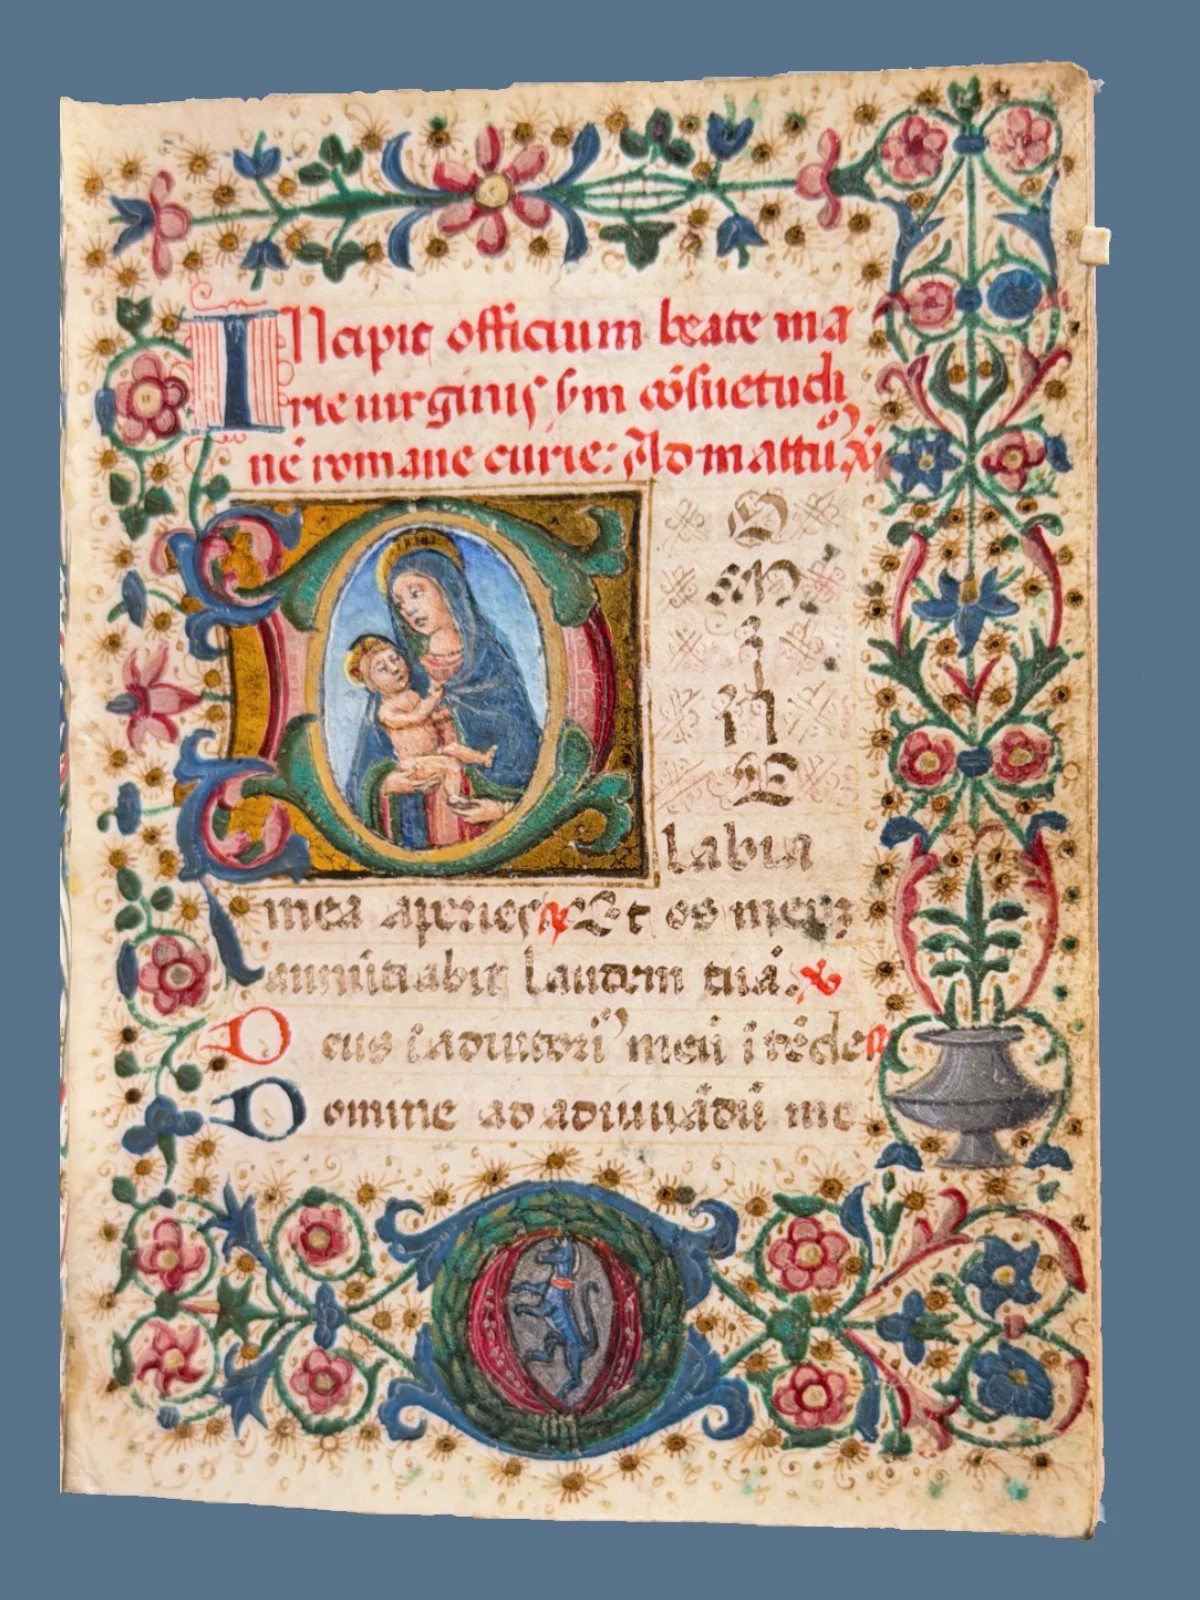 INcipit officium beate ma
rie uirginis s'm cōsuetudi
nē romane curie: Ad mattu
D
O
m
i
n
E
labia
mea aperies Et os meuʒ
annūtiabit laudem tuā.
Deus ī adiutoriʼ meū ītēde
Domine ad adiuuādū me